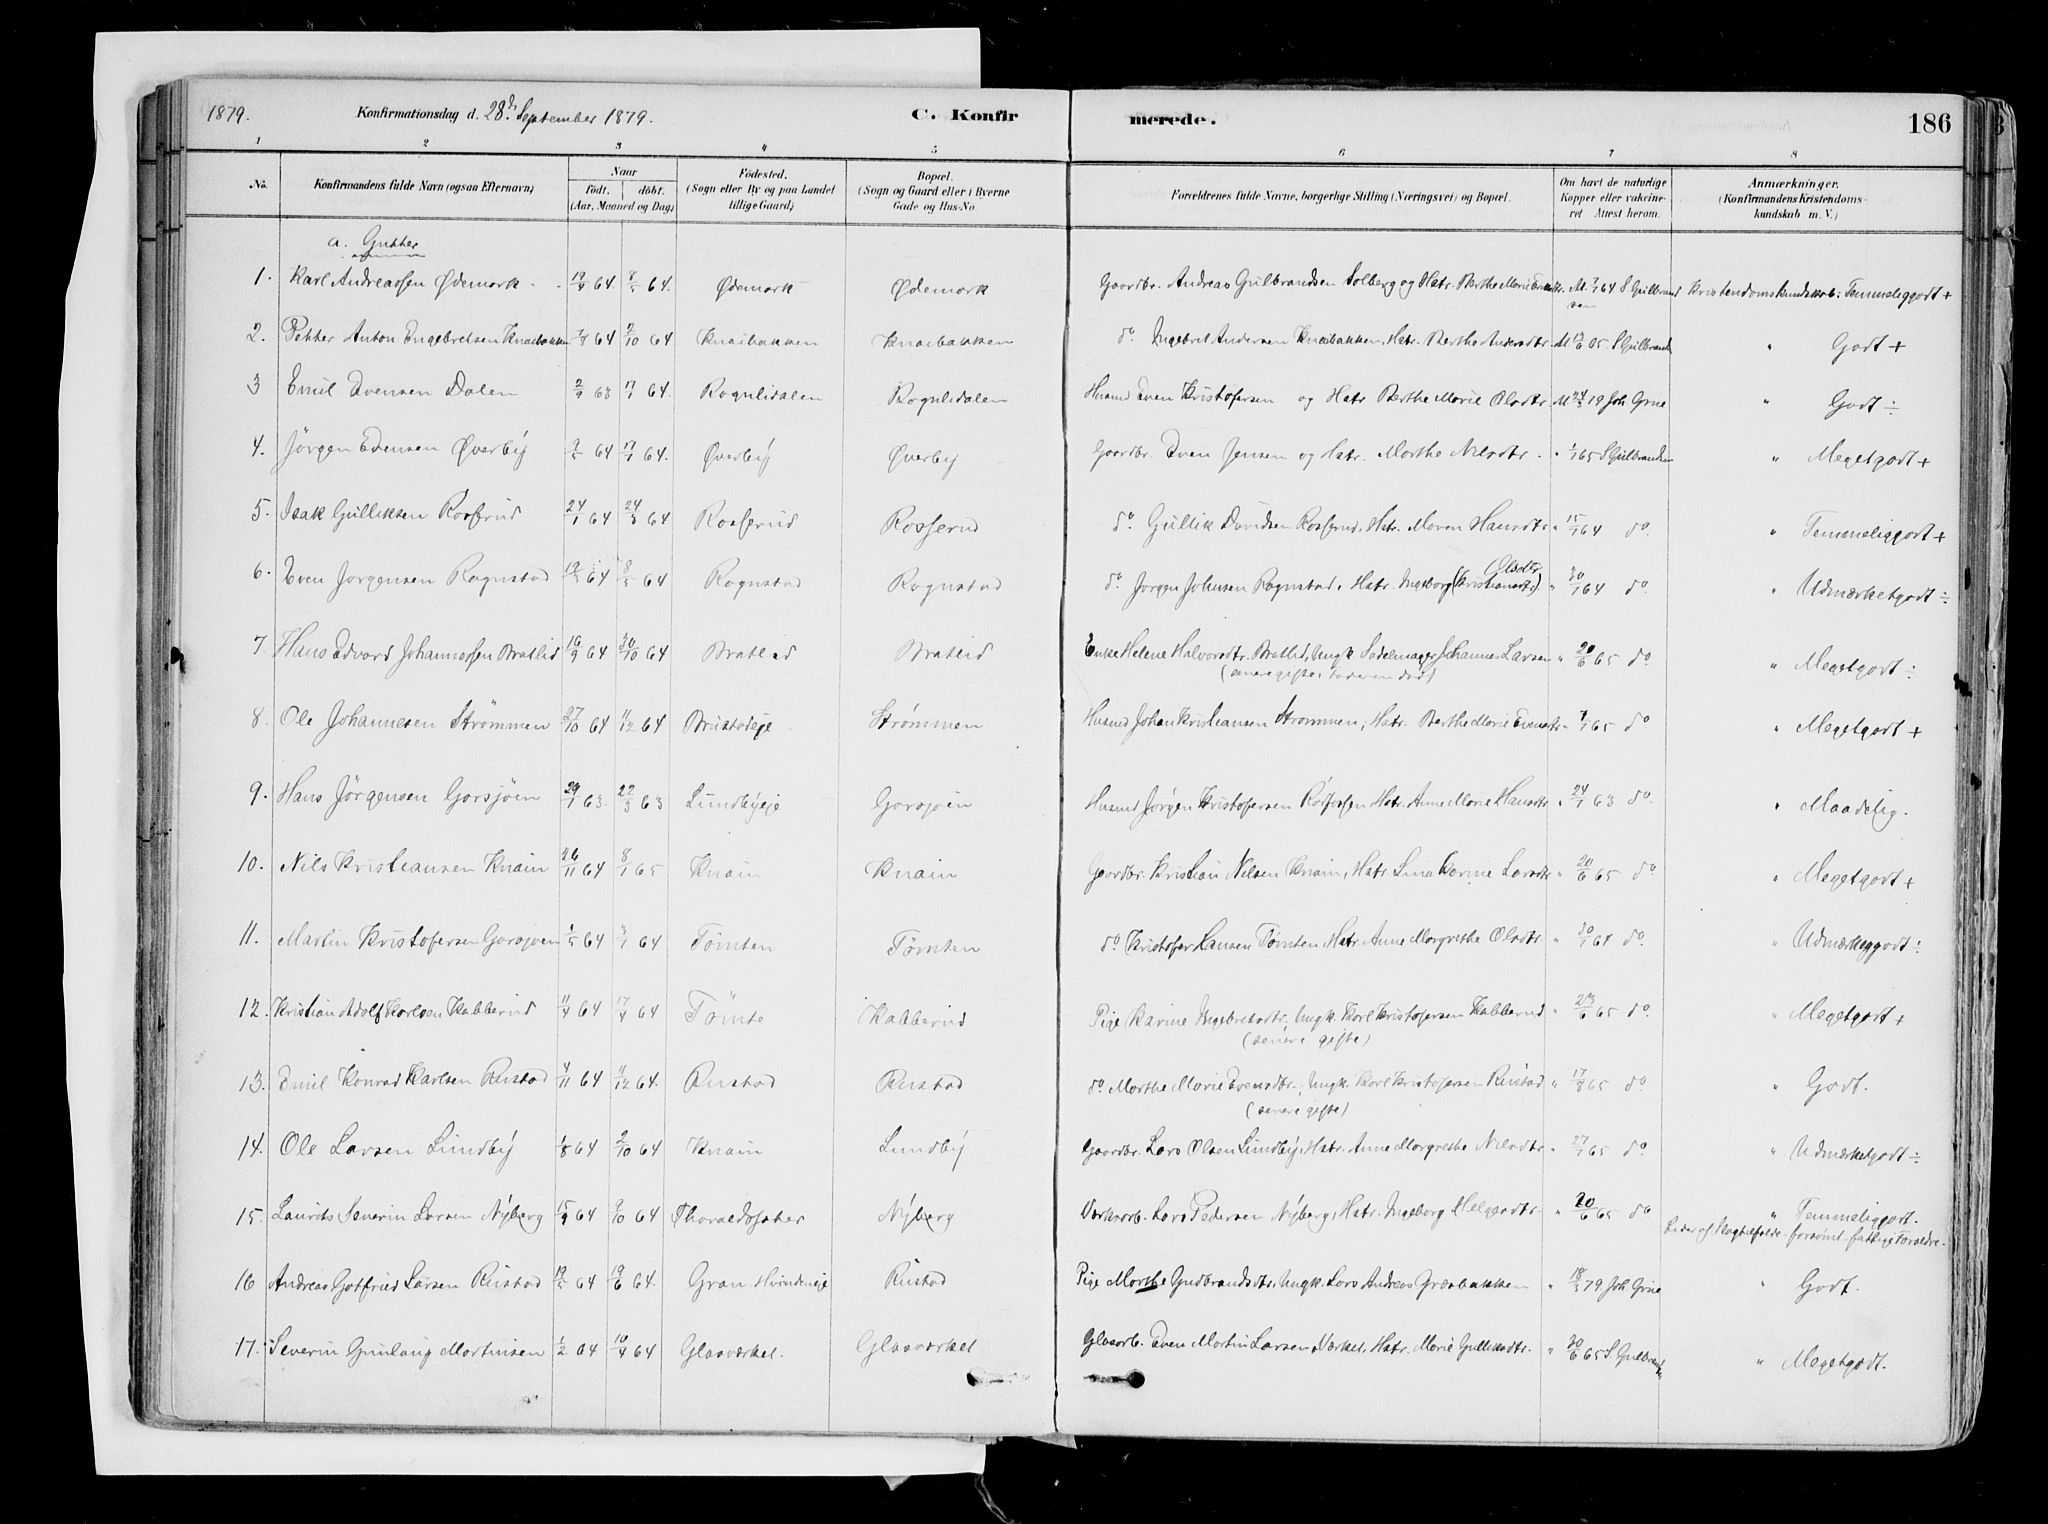 1879. Konfirmationsdag d. 28de September 1879. C. Konfirmerede. 186
1 2 3 4 5 6 7 8
No. Konfirmandens fulde Navn (ogsaa Efternavn) Naar født. døbt. (Aar, Maaned og Dag) Fødested. (Sogn eller By og paa Landet tillige Gaard) Bopæl. (Sogn og Gaard eller i Byerne Gade og Hus-No. Forældrenes fulde Navne, borgerlige Stilling (Næringsvei) og Bopæl. Om havt de naturlige Kopper eller vakcineret Attest herom. Anmærkninger. (Konfirmandens Kristendomskundskab m. V.)
a. Gutter
1. Karl Andreassen Ødemork 64 64. Ødemork Ødemork Gaardbr. Andreas Gulbrandsen Solberg og Hstr. Berthe Marie M. 64 S Gulbrandsen Kristendomskundskab: Temmeliggodt +
2. Petter Anton Engebretsen Knaibakken 64 2/10 64 Knaibakken Knaibakken do Ingebret Andersen Knaibakken, Hstr. Berthe Andersdtr. M 65 S Gulbrands " Godt +
3 Emil Evensen Dalen 63 17/1 64. Rognlidalen Rognlidalen Husmd Even Kristofersen og Hstr Berthe Marie Olsdtr. M Joh Grue " Godt ÷
4. Jörgen Evensen Øverbÿ 64 17/1 64. Øverbÿ Øverbÿ Gaardbr. Even Jensen og Hstr. Marthe Nilsdtr. " 1/1 65 S Gulbrandsen " Megetgodt +
5. Isak Gulliksen Rosserud 24/1 64 24/3 64 Rosserud Rosserud do. Gullik Davidsen Rosserud, Hstr. Maren Hansdtr " 15/1 64 do. " Temmeliggodt +
6. Even Jorgensen Rognstad 64 64 Rognstad Rognstad do. Jorgen Johnsen Rognstad, Hstr. Ingeborg (Kristiansdtr) Olsdtr. " 30/1 64 do. " Udmærketgodt ÷
7. Hans Edvard Johannessen Bratlid 16/9 64 30/10 64 Bratlid Bratlid Enke Helene Halvorsdtr. Bratlid, Ungk. Sadelmager Johannes Larsen " 20/6 65 do. " Megetgodt ÷
(senere gifte, faderen död)
8. Ole Johannesen Strömmen 27/10 64 11/12 64 Brustadeje Strømmen Husmd Johan Kristiansen Strømmen, Hstr. Berthe Marie Evensdtr " 65 do " Megetgodt +
9. Hans Jörgensen Gorsjöen 29/1 63. 22/3 63 Lundbyeje Gorsjoen Husmd Jørgen Kristofersen Hstr. Anne Marie Hansdtr " 24/1 63 do. " Maadelig.
10. Nils Kristiansen Knain 26/11 64 8/1 65 Knain Knain Gaardbr. Kristian Nilsen Knain, Hstr Lina Karine Larsdtr " 20/6 65 do. " Megetgodt +
11. Martin Kristofersen Gorsjoen 64 64 Tömten Tömten do Kristofer Hansen Tömten, Hstr. Anne Margrethe Olsdtr. " 30/1 64 do. " Udmærkeggodt ÷
12. Kristian Adolf Karlsen Kabberud 11/4 64 17/4 64 Tömte Kabberud Pige Karine Ingebretsdtr, Ungk. Karl Kristofersen Kabberud " 23/6 65 do. " Megetgodt +
(senere gifte)
13. Emil Konrad Karlsen Rustad 4/11 64 11/12 64. Rustad Rustad do. Marthe Marie Evensdtr., Ungk. Karl Kristofersen Rustad " 17/8 65 do. " Godt.
(senere gifte)
14. Ole Larsen Lundbÿ 1/8 64 2/10 64 Knain Lundbÿ Gaardbr. Lars Olsen Lundbÿ, Hstr. Anne Margrethe Nilsdtr " 27/1 65 do. " Udmærketgodt ÷
15. Laurits Severin Larsen Nÿberg 15/9 64 64 Nÿberg Lars Pedersen Nÿberg, Hstr. Ingeborg Helgesdtr. " 20/6 65 do " Temmeliggodt.
forsömt fattige Foreldre.
16 Andreas Gotfried Larsen Rustad 64 19/6 64. Gran Rustad Pige Marthe Gudbrandsdtr, Ungk. Lars Andreas Græsbakken " 18/3 79 Joh Grue " Godt.
17. Severin Gunlaug Martinsen 1/2 64 10/4 64 Glasværket. Glasværket Glasarb. Even Martin Larsen, Værket, Hstr. Marie Gulliksdtr. " 30/6 65 S. Gulbrands " Megetgodt.